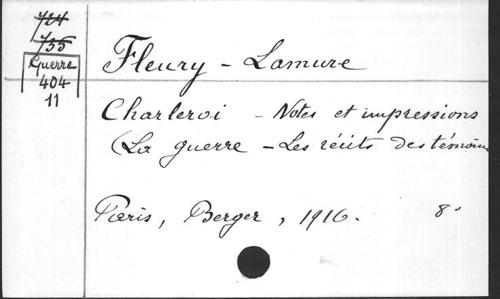 724
755
Guerre
404
11
Fleury - Lamure
Charleroi - Notes et impressions
(La guerre - Les récits des témoins
Paris, Berger, 1916. 8°